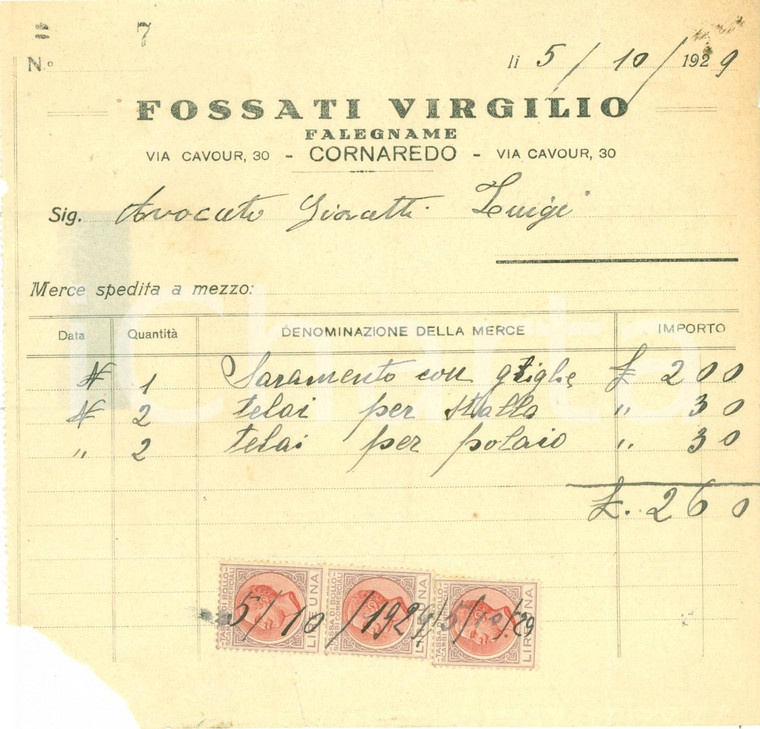 7
N.º
li 5/10/1929
FOSSATI VIRGILIO
FALEGNAME
VIA CAVOUR, 30 - CORNAREDO - VIA CAVOUR, 30
Sig. Avocato Luigi
Merce spedita a mezzo:
Data Quantità DENOMINAZIONE DELLA MERCE IMPORTO
N 1 Saramento con griglie £ 200
N 2 telai per stalla " 30
" 2 telai per polaio " 30
£. 260
TASSA DI BOLLO LIRE UNA TASSA DI BOLLO LIRE UNA TASSA DI BOLLO LIRE UNA
5/10/1929 5/10/29
iCharta